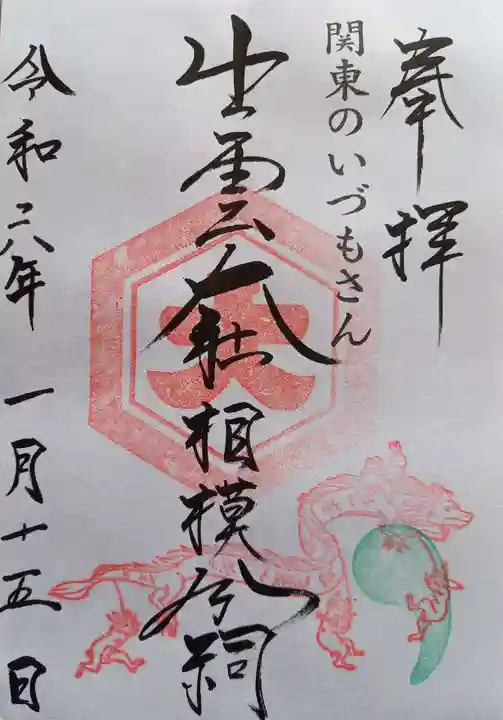 奉拝
関東のいづもさん
出雲大社相模分祠
大
令和六年 一月十五日